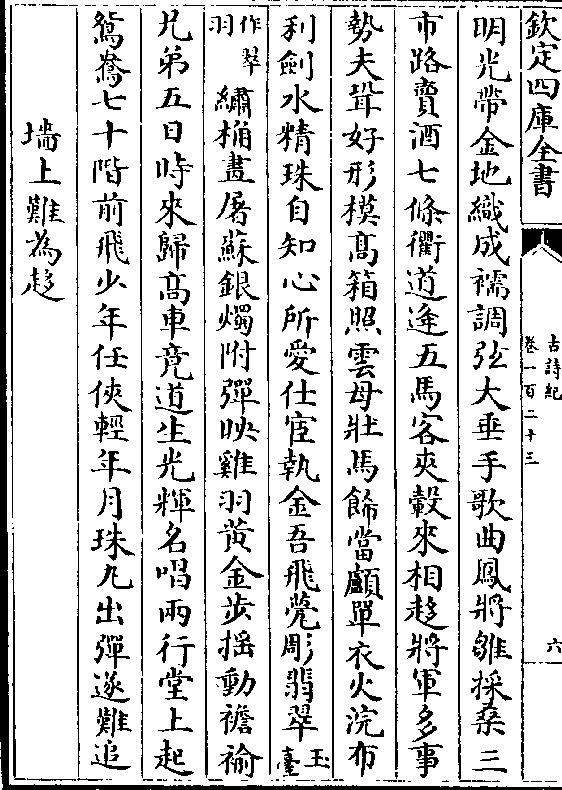 欽定四庫全書
古詩紀
卷一百二十三
六
明光帶金地織成襦調弦大垂手歌曲鳳將雛採桑三
市路賣酒七條衢道逢五馬客夾轂來相趍將軍多事
勢夫聟好形模髙箱照雲母壮馬飾當顱單衣火浣布
利劍水精珠自知心所愛仕宦執金吾飛甍彫翡翠玉臺
作翠羽繡桷畫屠蘇銀燭附彈映雞羽黄金步揺動襜褕
兄弟五日時來歸髙車竟道生光輝名唱兩行堂上起
鴛鴦七十階前飛少年任俠輕年月珠丸出彈遂難追
墻上難為趍